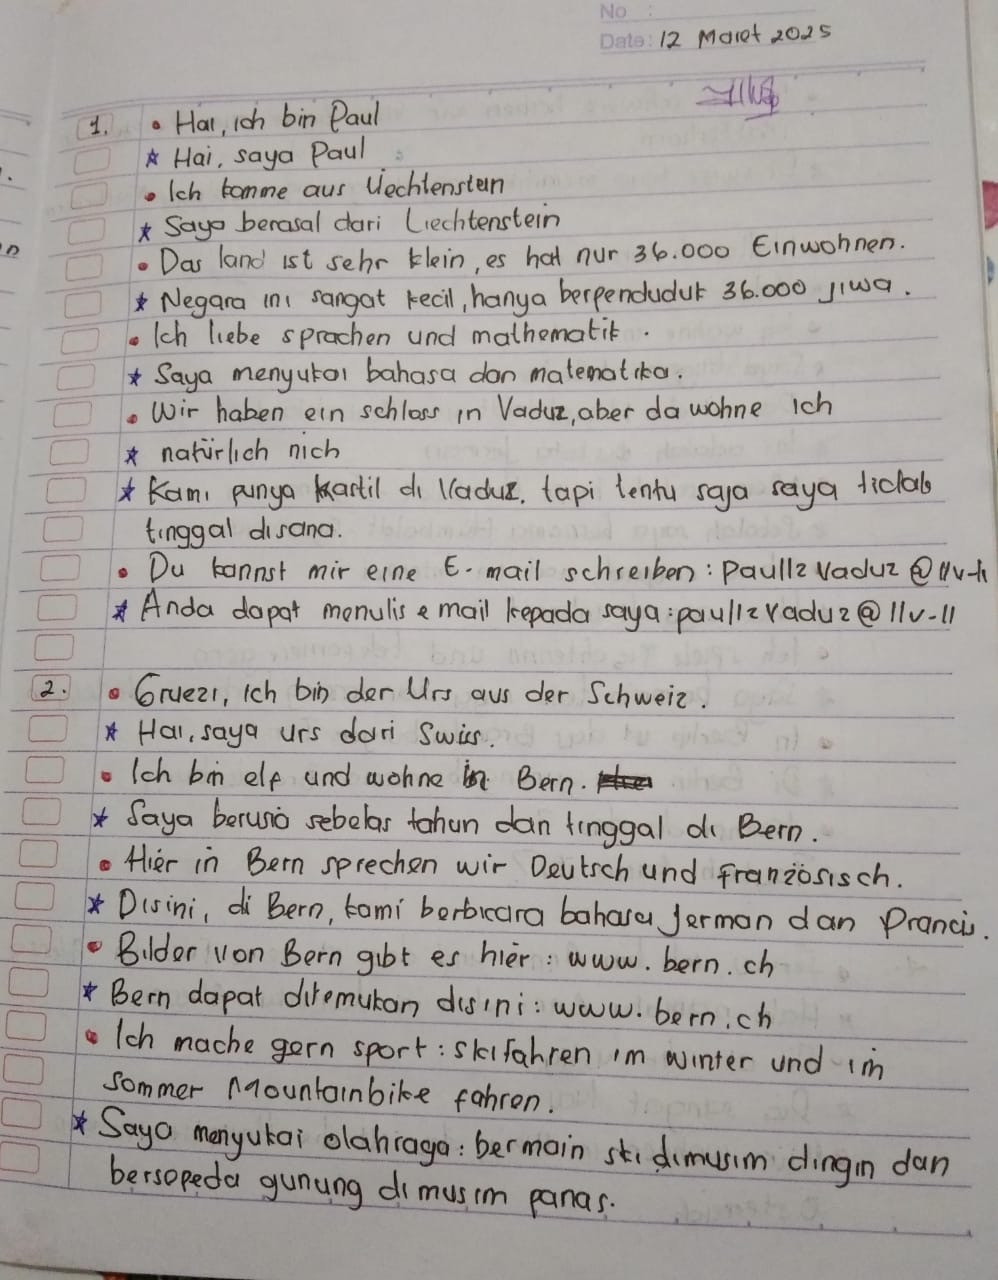 No :
Date: 12 Maret 2025
1. • Hai, ich bin Paul
★ Hai, saya Paul
• Ich komme aus Liechtenstein
★ Saya berasal dari Liechtenstein
• Das land ist sehr klein, es hat nur 36.000 Einwohnen.
★ Negara ini sangat kecil, hanya berpenduduk 36.000 jiwa.
• Ich liebe sprachen und mathematik.
★ Saya menyukai bahasa dan matematika.
• Wir haben ein schloss in Vaduz, aber da wohne ich
★ natürlich nich
★ Kami punya kastil di Vaduz, tapi tentu saja saya tidak
tinggal disana.
• Du kannst mir eine E-mail schreiben: paullz vaduz @ llv-li
★ Anda dapat menulis e mail kepada saya: paullz vaduz @ llv-ll
2. • Gruezi, ich bin der Urs aus der Schweiz.
★ Hai, saya urs dari Swiss.
• Ich bin elf und wohne in Bern.
★ Saya berusia sebelas tahun dan tinggal di Bern.
• Hier in Bern sprechen wir Deutsch und französisch.
★ Disini, di Bern, kami berbicara bahasa Jerman dan Prancis.
• Bilder von Bern gibt es hier: www.bern.ch
★ Bern dapat ditemukan disini: www.bern.ch
• Ich mache gern sport: skifahren im winter und im
sommer Mountainbike fahren.
★ Saya menyukai olahraga: bermain ski dimusim dingin dan
bersepeda gunung di musim panas.